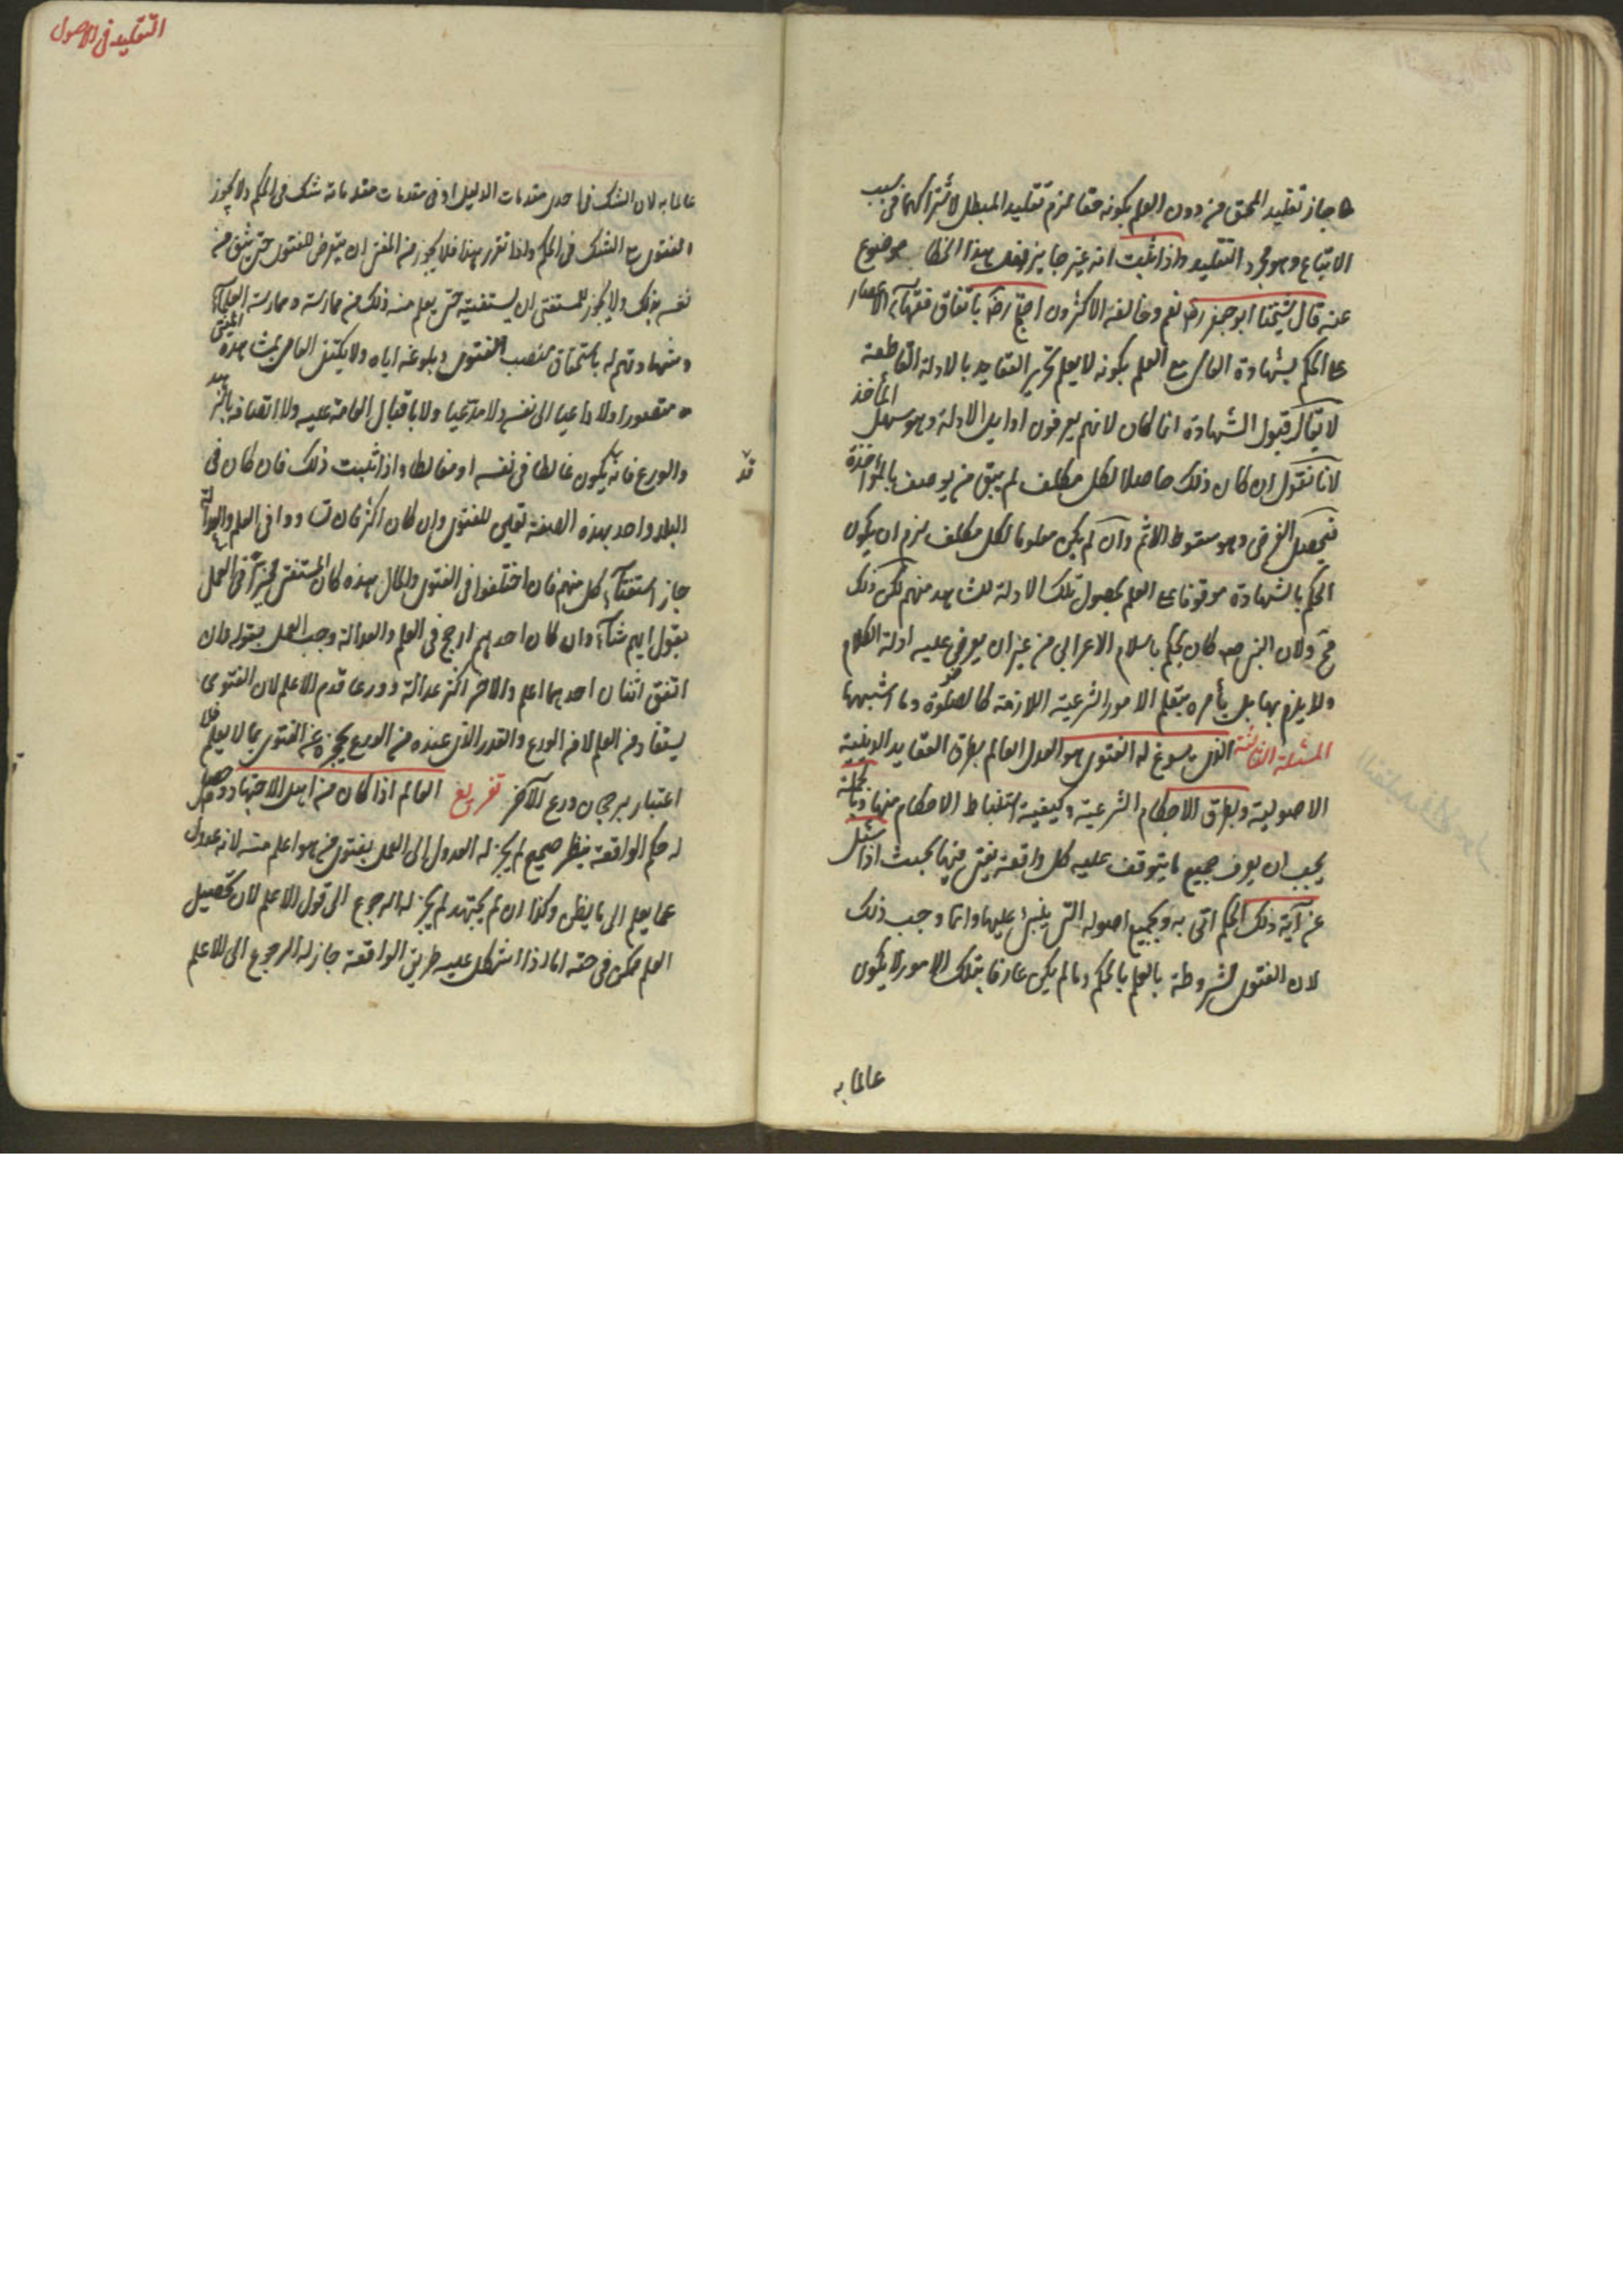 لو جاز تقليد المحق من دون العلم بكونه حقا لزم تقليد المبطل لاشتراكهما في سبب
الاتباع وهو مجرد التقليد واذا ثبت انه غير جايز فهل هذا الخطا موضوع
عنه قال شيخنا ابو جعفر ره نعم وخالفه الاكثرون احتج رضه باتفاق فقهآء الاعصار
على الحكم بشهادة العامى مع العلم بكونه لا يعلم تحرير العقايد بالادلة القاطعة
لا يقال قبول الشهادة انما كان لانهم يعرفون اوايل الادلة وهو سهل المأخذ
لانا نقول ان كان ذلك حاصلا لكل مكلف لم يبق من يوصف بالمؤاخذة
فيحصل الغرض وهو سقوط الاثم وان لم يكن معلوما لكل مكلف لزم ان يكون
الحكم بالشهادة موقوفا على العلم بحصول تلك الادلة للشاهد منهم لكن ذلك
مح ولان النبى صه كان يحكم باسلام الاعرابى من غير ان يعرض عليه ادلة الكلام
ولا يلزم بها بل يأمره بتعلم الامور الشرعية اللازمة كالصلوة وما اشبهها
المسئلة الثالثة الذى يسوغ له الفتوى هو العدل العالم بطرق العقايد الدينية
الاصولية وبطرق الاحكام الشرعية وكيفية استنباط الاحكام منها وبالجملة
يجب ان يعرف جميع ما يتوقف عليه كل واقعة يفتى فيها بحيث اذا سئل
عن آية ذلك الحكم اتى به وبجميع اصوله التى يبنى عليها وانما وجب ذلك
لان الفتوى مشروطة بالعلم بالحكم وما لم يكن عارفا بتلك الامور لا يكون
عالما به
التقليد فى الاصول
عالما به لان الشك فى احدى مقدمات الدليل او فى مقدمات مقدماته شك فى الحكم ولا يجوز
الفتوى مع الشك فى الحكم واذا تقرر هذا فلا يجوز من المفتى ان يتعرض للفتوى حتى يثق من
نفسه بذلك ولا يجوز للمستفتى ان يستفتيه حتى يعلم منه ذلك من ممارسته وممارسة العلمآء
وشهادتهم له باستحقاق منصب الفتوى وبلوغه اياه ولا يكتفى العامى بمشاهدة المفتى
متصدرا ولا داعيا الى نفسه ولا مدعيا ولا باقبال العامة عليه ولا اتصافه بالزهد
والورع فانه يكون غالطا فى نفسه او مغالطا واذا ثبت ذلك فان كان فى
قد
البلد واحد بهذه الصفة تعين للفتوى وان كان اكثر فان تساووا فى العلم والعدالة
جاز استفتآء كل منهم فان اختلفوا فى الفتوى والحال هذه كان المستفتى مخيرا فى العمل
بقول ايهم شآء وان كان احدهم ارجح فى العلم والعدالة وجب العمل بقوله وان
اتفق اثنان احدهما اعلم والاخر اكثر عدالة وورعا قدم الاعلم لان الفتوى
يستفاد من العلم لا من الورع والقدر الذى عنده من الورع يحجزه عن الفتوى بما لا يعلم فلا
اعتبار برجحان ورع الآخر تفريع العالم اذا كان من اهل الاجتهاد وحصل
له حكم الواقعة بنظر صحيح لم يجز له العدول الى العمل بفتوى من هو اعلم منه لانه عدول
عما يعلم الى ما يظن وكذا ان لم يجتهد لم يجز له الرجوع الى قول الاعلم لان تحصيل
العلم ممكن فى حقه اما اذا اشكل عليه طريق الواقعة جاز له الرجوع الى الاعلم